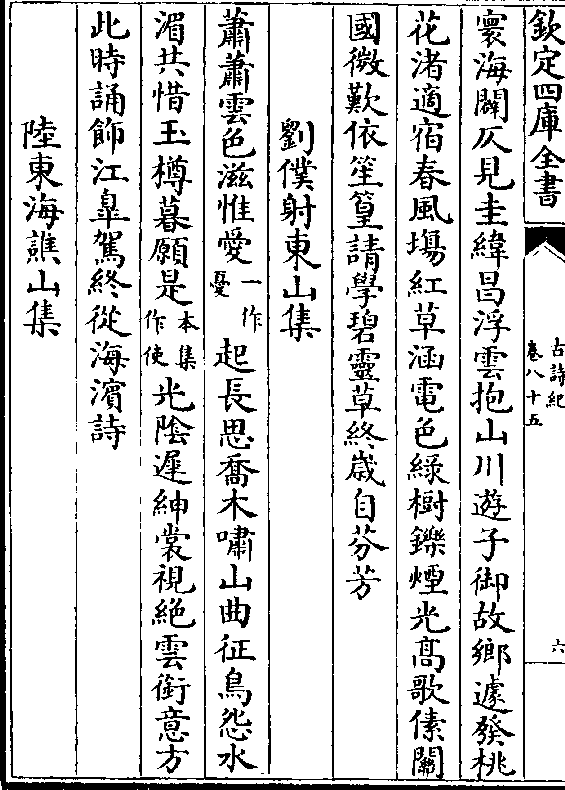 欽定四庫全書
古詩紀
卷八十五
六
寰海闢仄見圭緯昌浮雲抱山川遊子御故鄉遽發桃
花渚適宿春風塲紅草涵電色綠樹鑠煙光髙歌傃關
國微歎依笙篁請學碧靈草終嵗自芬芳
劉僕射東山集
蕭蕭雲色滋惟愛一作憂起長思喬木嘯山曲征鳥怨水
湄共惜玉樽暮願是本集作使光陰遲紳裳視絶雲銜意方
此時誦飾江臯駕終從海濱詩
陸東海譙山集